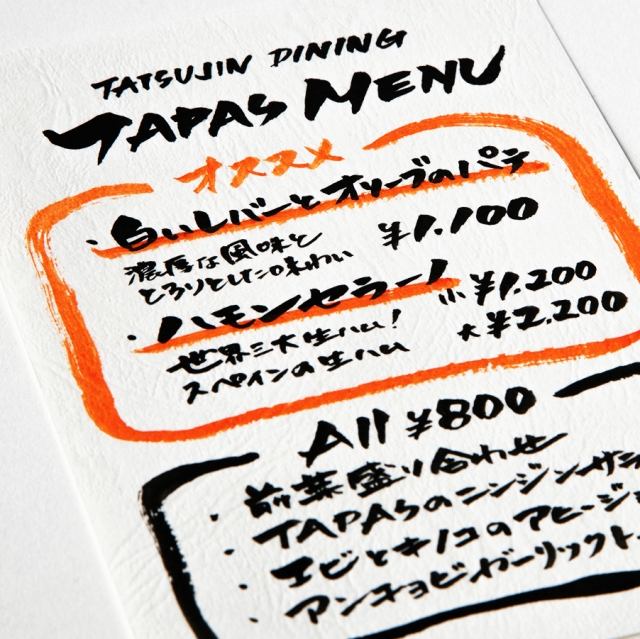 TATSUJIN DINING
TAPAS MENU
オススメ
・白いレバーとオリーブのパテ
濃厚な風味と
とろりとした味わい
¥1.100
・ハモンセラーノ
小 ¥1.200
大 ¥2.200
世界三大生ハム!
スペインの生ハム
All ¥800
・前菜盛り合わせ
・TAPASのニンジンサラ
・エビとキノコのアヒージョ
・アンチョビガーリックト